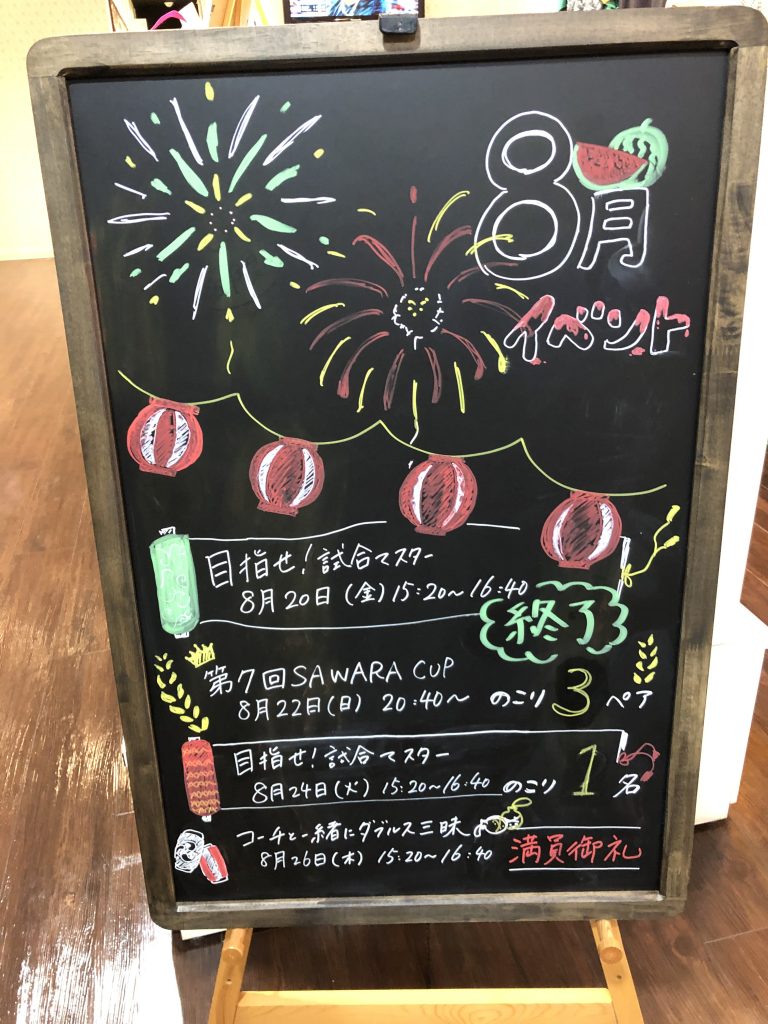 8月
イベント
目指せ!試合マスター
8月20日(金)15:20~16:40
終了
第7回SAWARA CUP
8月22日(日) 20:40~ のこり3ペア
目指せ!試合マスター
8月24日(火) 15:20~16:40 のこり1名
コーチと一緒にダブルス三昧
8月26日(木) 15:20~16:40 満員御礼